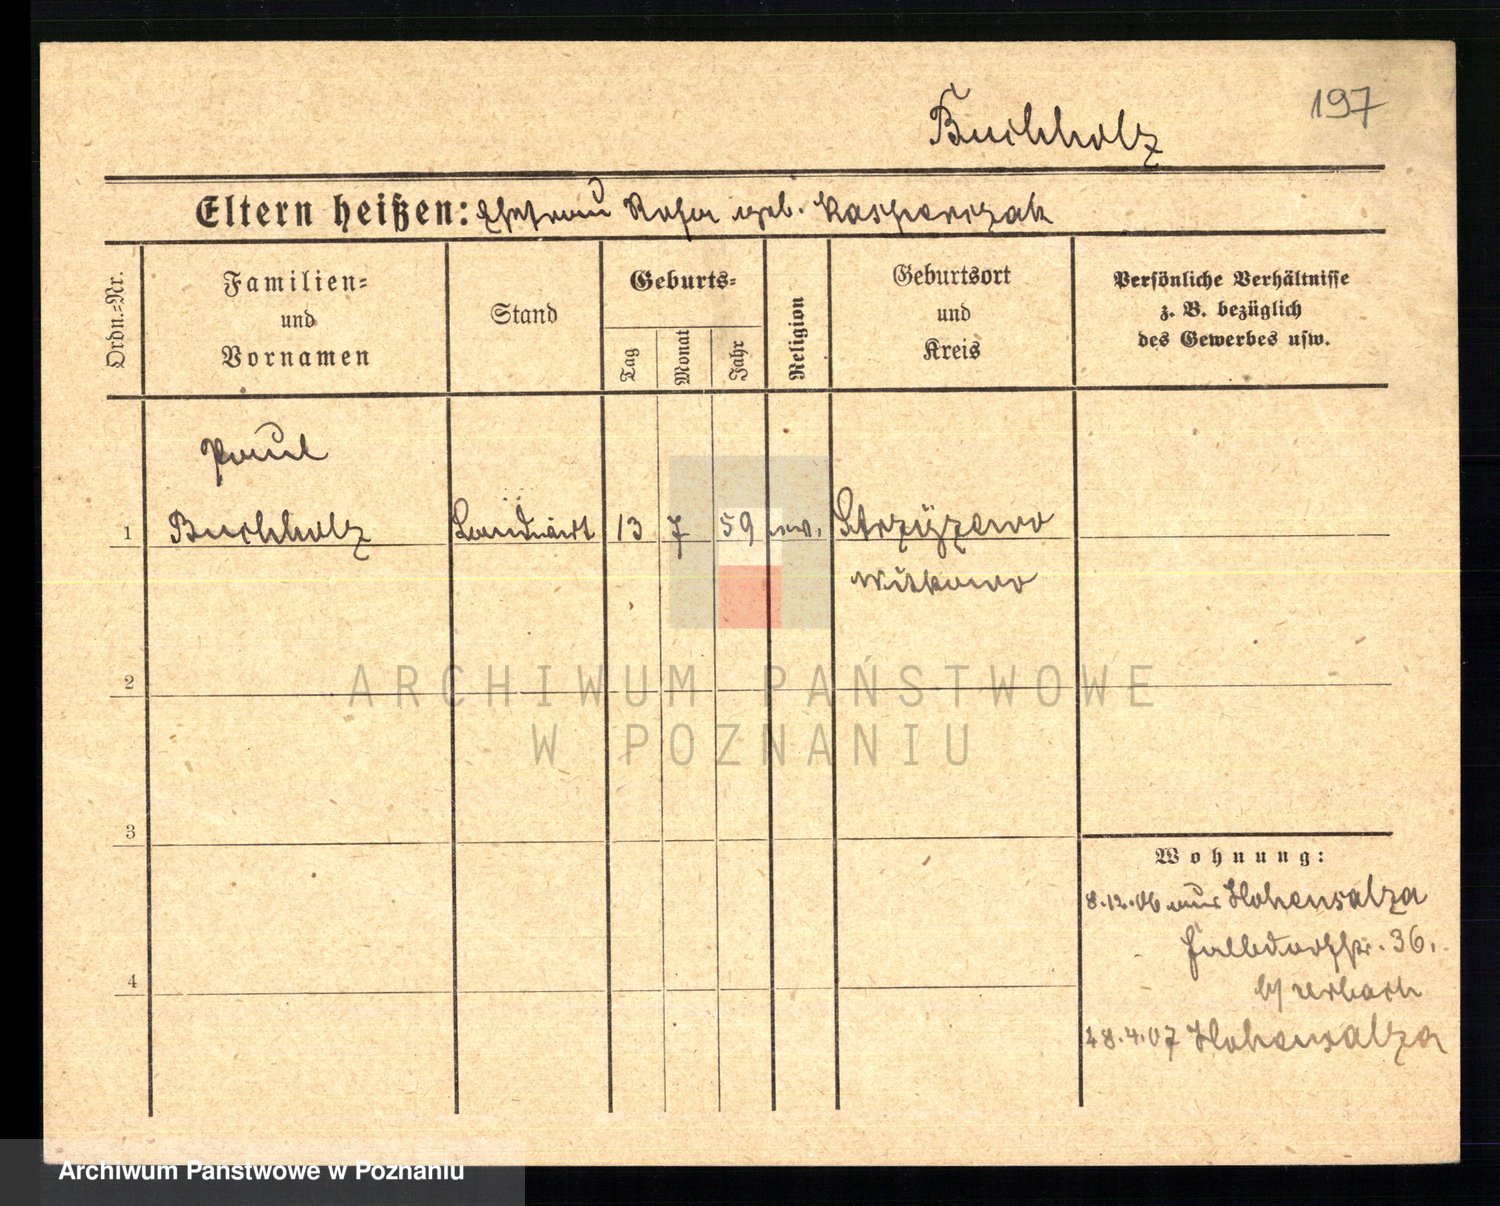 197
Buchholz
Eltern heißen: Ehefrau Rosa geb. Kasperczak
Ordn.=Nr.
Familien=
und
Vornamen
Stand
Geburts=
Tag
Monat
Jahr
Religion
Geburtsort
und
Kreis
Persönliche Verhältnisse
z. B. bezüglich
des Gewerbes usw.
Paul
1 Buchholz Landwirt 13 7 59 ev. Strzyzewo
Witkowo
2
3
4
Wohnung:
8.12.06 aus Hohensalza
36.
b/
18.4.07 Hohensalza
ARCHIWUM PAŃSTWOWE
W POZNANIU
Archiwum Państwowe w Poznaniu